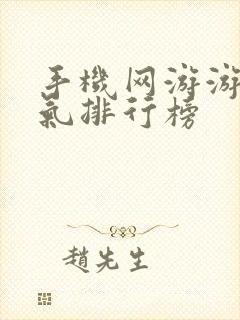 手機网游游
氣排行榜
趙先生